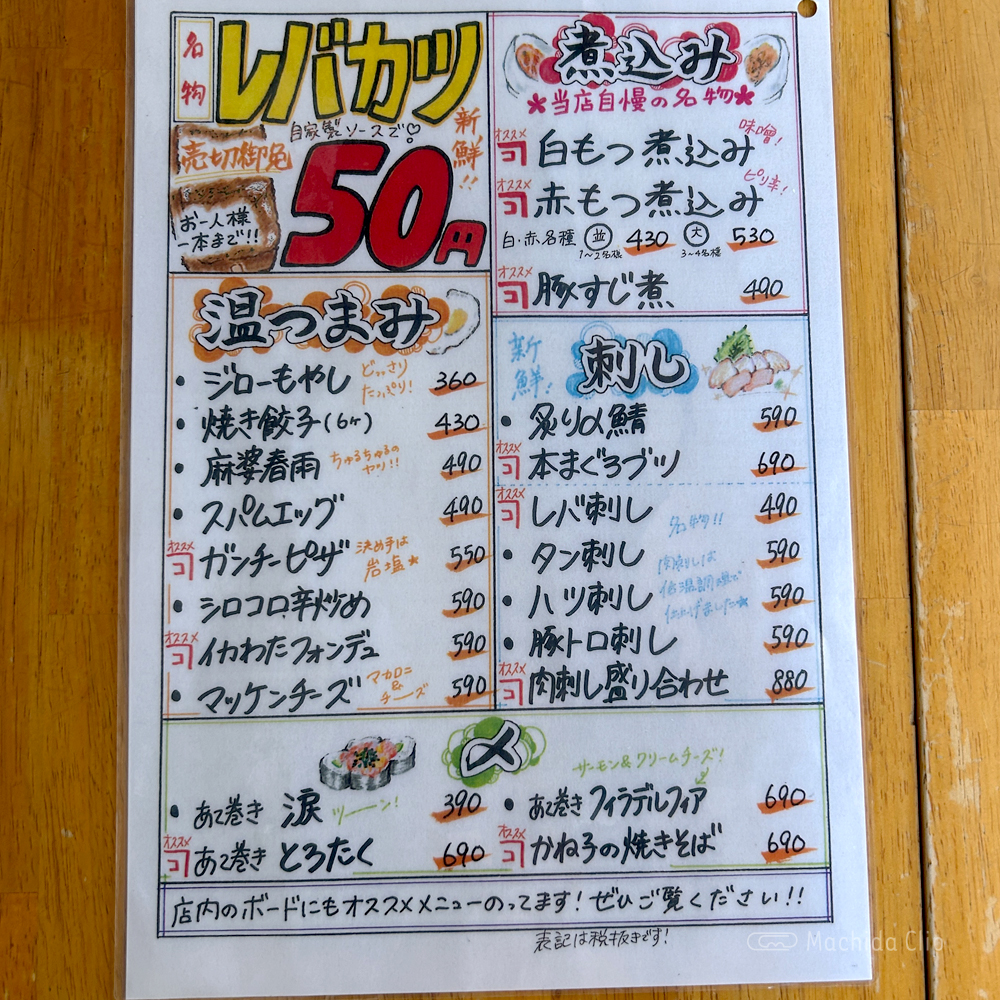 名物
レバカツ
自家製ソースで♡
新鮮!!
売切御免
50円
お一人様
一本まで!!
煮込み
当店自慢の名物
オススメ
白もつ煮込み
味噌!
オススメ
赤もつ煮込み
ピリ辛!
白・赤各種 並 430 大 530
1〜2名様 3〜4名様
オススメ
豚すじ煮 490
温つまみ
・ジローもやし どっさりたっぷり! 360
・焼き餃子(6ヶ) 430
・麻婆春雨 ちゅるちゅるのヤツ!! 490
・スパムエッグ 490
オススメ
ガンチーピザ 決め手は岩塩★ 550
・シロコロ辛炒め 590
オススメ
イカわたフォンデュ 590
・マッケンチーズ マカロニ&チーズ 590
新鮮!
刺し
・炙り〆鯖 590
オススメ
本まぐろブツ 690
オススメ
レバ刺し 490
名物!!
・タン刺し 590
肉刺しは
低温調理で
仕上げました★
・ハツ刺し 590
・豚トロ刺し 590
オススメ
肉刺し盛り合わせ 880
〆
・あて巻き 涙 ツーーン! 390
サーモン&クリームチーズ!
・あて巻き フィラデルフィア 690
オススメ
あて巻き とろたく 690
オススメ
かね子の焼きそば 690
店内のボードにもオススメメニューのってます!ぜひご覧ください!!
表記は税抜きです!
Machida Clip